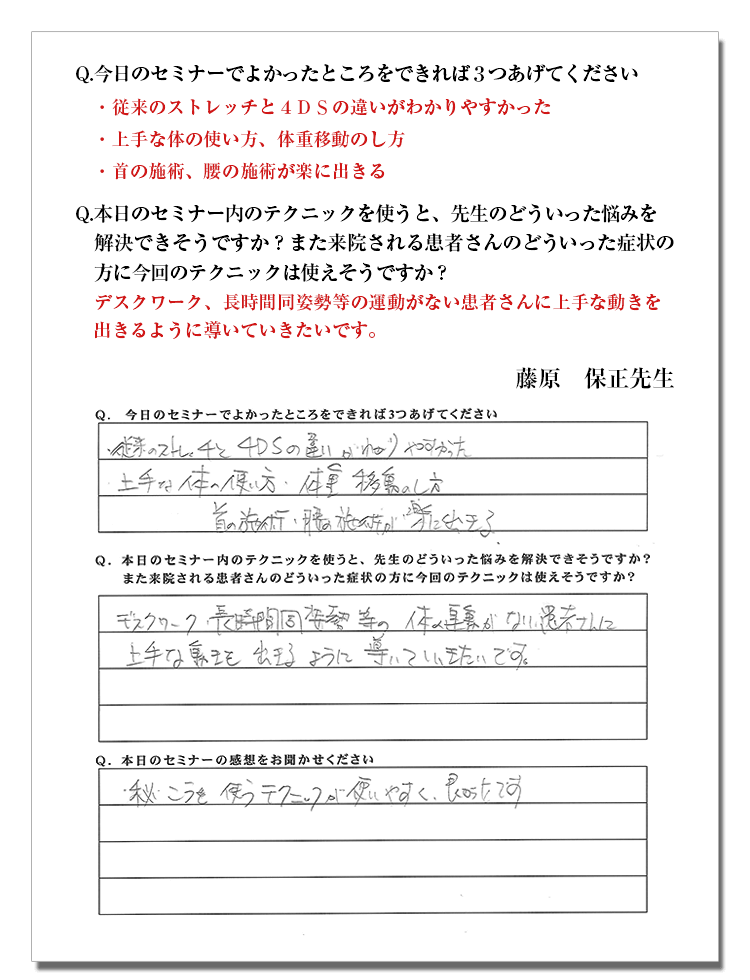 Q.今日のセミナーでよかったところをできれば３つあげてください
・従来のストレッチと４ＤＳの違いがわかりやすかった
・上手な体の使い方、体重移動のし方
・首の施術、腰の施術が楽に出きる
Q.本日のセミナー内のテクニックを使うと、先生のどういった悩みを
解決できそうですか？また来院される患者さんのどういった症状の
方に今回のテクニックは使えそうですか？
デスクワーク、長時間同姿勢等の運動がない患者さんに上手な動きを
出きるように導いていきたいです。
藤原　保正先生
Q. 今日のセミナーでよかったところをできれば3つあげてください
・従来のストレッチと4DSの違いがわかりやすかった
・上手な体の使い方・体重移動のし方
首の施術・腰の施術が楽に出きる
Q. 本日のセミナー内のテクニックを使うと、先生のどういった悩みを解決できそうですか？
また来院される患者さんのどういった症状の方に今回のテクニックは使えそうですか？
デスクワーク・長時間同姿勢等の体の運動がない患者さんに
上手な動きを出きるように導いていきたいです。
Q. 本日のセミナーの感想をお聞かせください
使うテクニックが使いやすく、良かったです